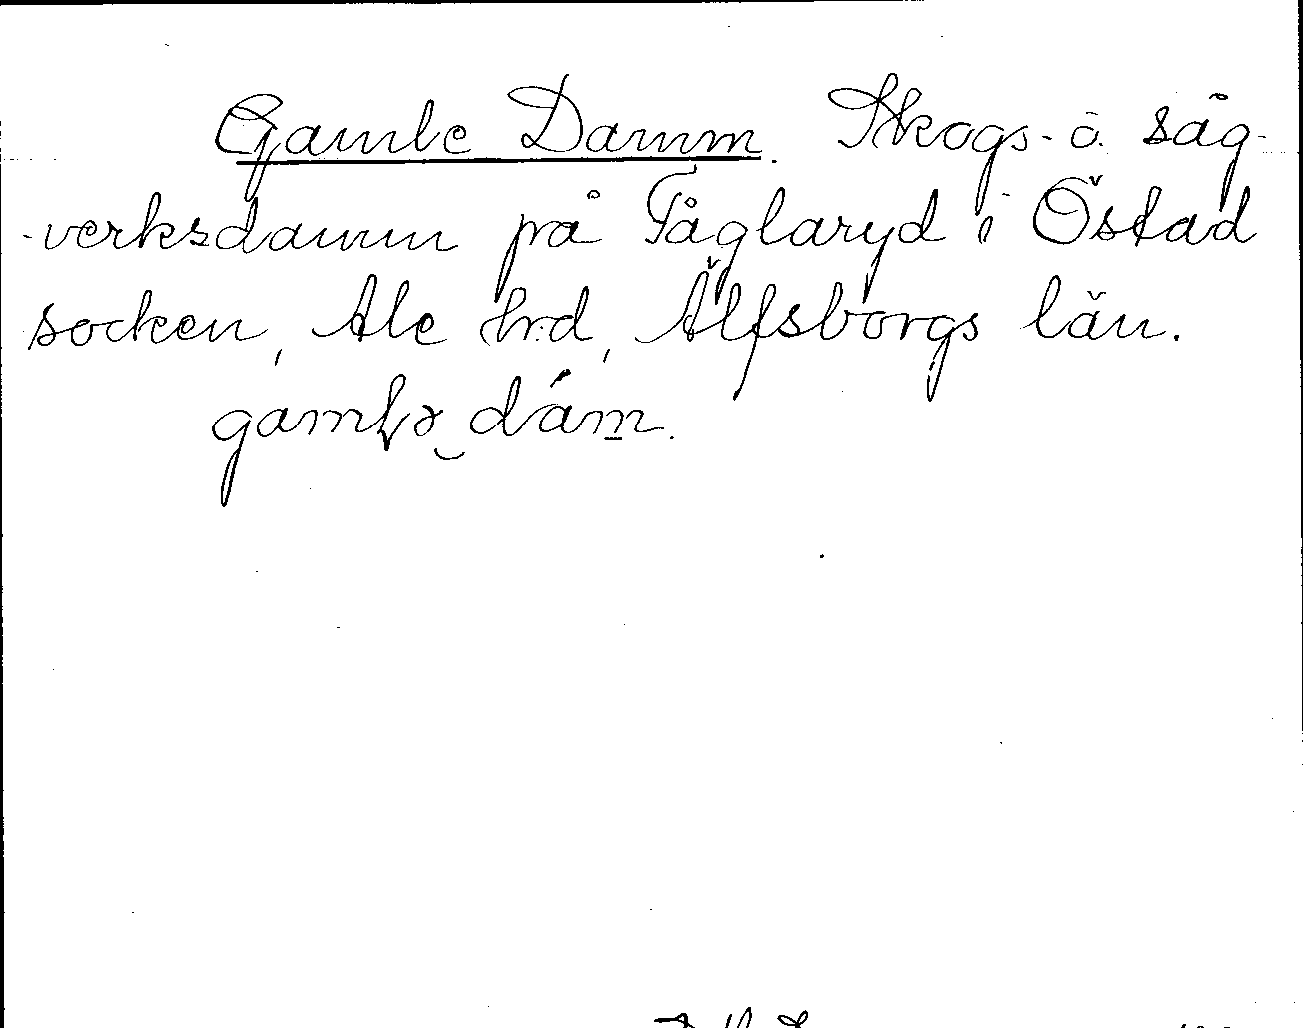 Gamle Damm. Skogs- o. såg-
-verksdamm på Fåglaryd i Östad
socken, Ale hrd, Älfsborgs län.
gamlə dám.